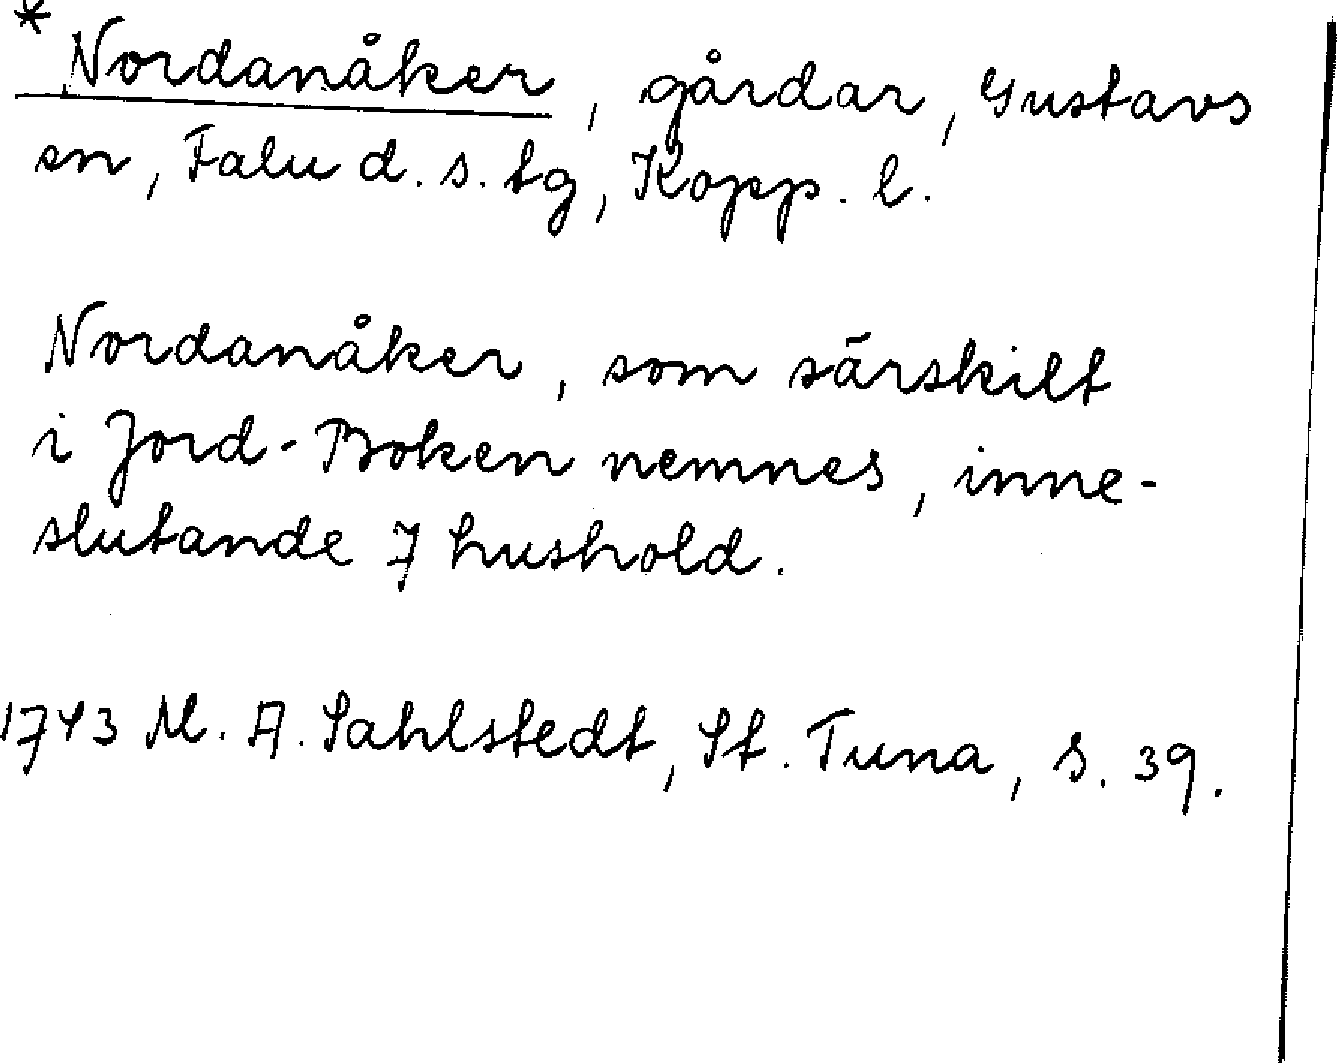 * Nordanåker, gårdar, Gustavs
sn, Falu d. s. tg, Kopp. l.
Nordanåker, som särskilt
i Jord-Boken nemnes, inne-
slutande 7 hushold.
1743 M. A. Sahlstedt, St. Tuna, s. 39.